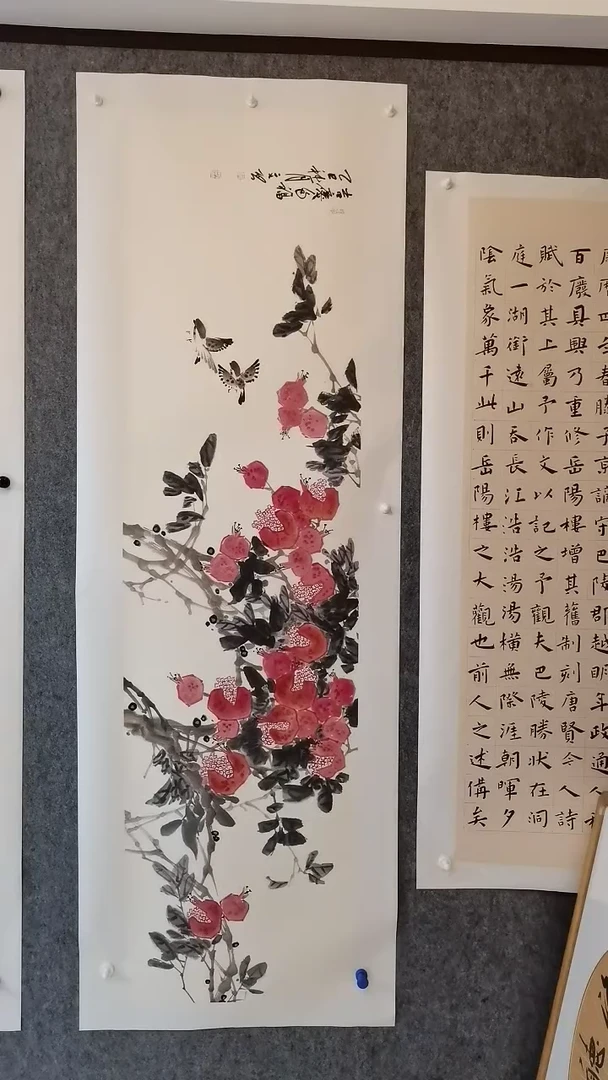 慶曆四年春滕子京謫守巴陵郡越明年政通人和
百廢具興乃重修岳陽樓增其舊制刻唐賢今人詩
賦於其上屬予作文以記之予觀夫巴陵勝狀在洞
庭一湖銜遠山吞長江浩浩湯湯橫無際涯朝暉夕
陰氣象萬千此則岳陽樓之大觀也前人之述備矣
吉慶多福
乙巳秋月